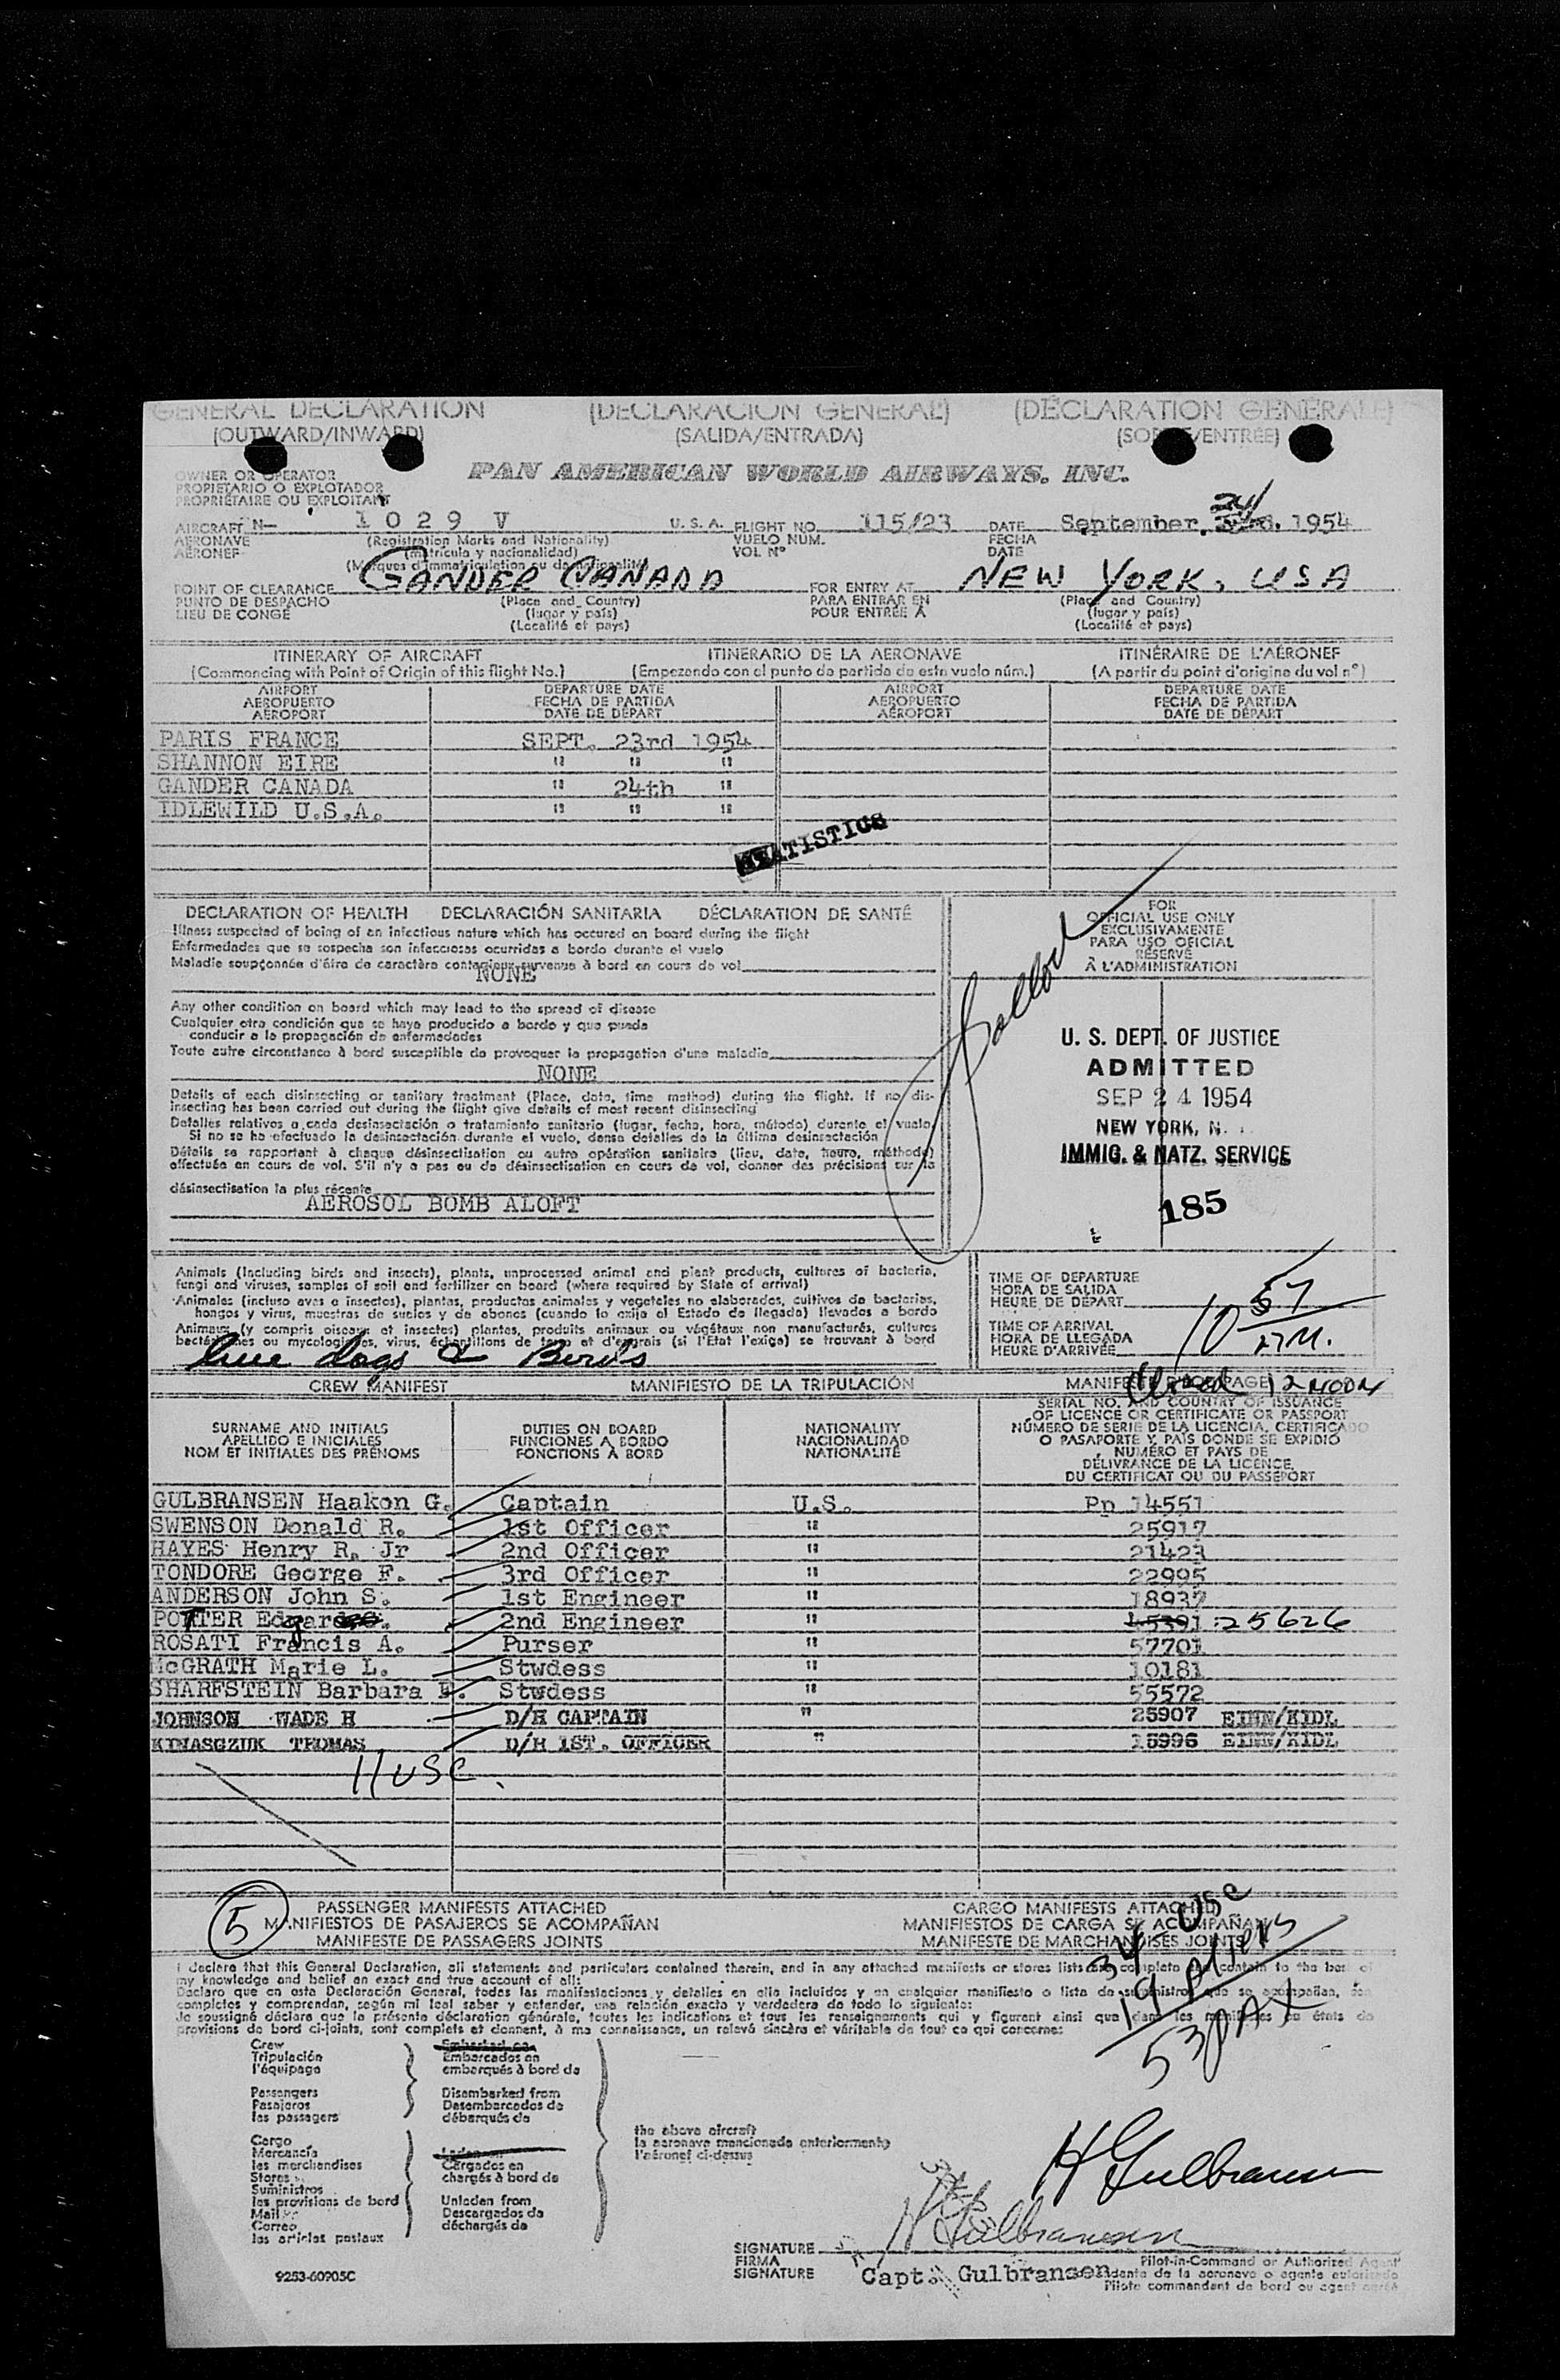 GENERAL DECLARATION (DECLARACIÓN GENERAL) (DÉCLARATION GÉNÉRALE)
(OUTWARD/INWARD) (SALIDA/ENTRADA) (SORTIE/ENTRÉE)
OWNER OR OPERATOR
PROPIETARIO O EXPLOTADOR
PROPRIÉTAIRE OU EXPLOITANT
PAN AMERICAN WORLD AIRWAYS, INC.
AIRCRAFT N- 1 0 2 9 V U. S. A. FLIGHT NO. 115/23 DATE September 24 1954
AÉRONAVE (Registration Marks and Nationality) VUELO NUM. FECHA
AÉRONEF (matrícula y nacionalidad) VOL Nº DATE
(Marques d'immatriculation ou de nationalité)
POINT OF CLEARANCE GANDER CANADA FOR ENTRY AT NEW YORK, USA
PUNTO DE DESPACHO (Place and Country) PARA ENTRAR EN (Place and Country)
LIEU DE CONGÉ (lugar y país) POUR ENTRÉE À (lugar y país)
(Localité et pays) (Localité et pays)
ITINERARY OF AIRCRAFT ITINERARIO DE LA AERONAVE ITINÉRAIRE DE L'AÉRONEF
(Commencing with Point of Origin of this flight No.) (Empezando con el punto de partida de este vuelo núm.) (A partir du point d'origine du vol nº)
AIRPORT DEPARTURE DATE AIRPORT DEPARTURE DATE
AEROPUERTO FECHA DE PARTIDA AEROPUERTO FECHA DE PARTIDA
AÉROPORT DATE DE DÉPART AÉROPORT DATE DE DÉPART
PARIS FRANCE SEPT. 23rd 1954
SHANNON EIRE " " "
GANDER CANADA " 24th "
IDLEWILD U.S.A. " " "
STATISTICS
DECLARATION OF HEALTH DECLARACIÓN SANITARIA DÉCLARATION DE SANTÉ
Illness suspected of being of an infectious nature which has occured on board during the flight
Enfermedades que se sospecha son infecciosas ocurridas a bordo durante el vuelo
Maladie soupçonnée d'être de caractère contagieux survenue à bord en cours de vol
NONE
Any other condition on board which may lead to the spread of disease
Cualquier otra condición que se haya producido a bordo y que pueda
conducir a la propagación de enfermedades
Toute autre circonstance à bord susceptible de provoquer la propagation d'une maladie
NONE
Details of each disinsecting or sanitary treatment (Place, date, time method) during the flight. If no dis-
insecting has been carried out during the flight give details of most recent disinsecting
Detalles relativos a cada desinsectación o tratamiento sanitario (lugar, fecha, hora, método) durante el vuelo.
Si no se ha efectuado la desinsectación durante el vuelo, dense detalles de la última desinsectación
Détails se rapportant à chaque désinsectisation ou autre opération sanitaire (lieu, date, heure, méthode)
effectuée en cours de vol. S'il n'y a pas eu de désinsectisation en cours de vol, donner des précisions sur la
désinsectisation la plus récente
AEROSOL BOMB ALOFT
FOR
OFFICIAL USE ONLY
EXCLUSIVAMENTE
PARA USO OFICIAL
RÉSERVÉ
À L'ADMINISTRATION
U. S. DEPT. OF JUSTICE
ADMITTED
SEP 24 1954
NEW YORK, N.
IMMIG. & NATZ. SERVICE
185
Animals (Including birds and insects), plants, unprocessed animal and plant products, cultures of bacteria,
fungi and viruses, samples of soil and fertilizer on board (where required by State of arrival)
Animales (incluso aves o insectos), plantas, productos animales y vegetales no elaborados, cultivos de bacterias,
hongos y virus, muestras de suelos y de abonos (cuando lo exija el Estado de llegada) llevados a bordo
Animaux (y compris oiseaux et insectes) plantes, produits animaux ou végétaux non manufacturés, cultures
bactériennes ou mycologiques, virus, échantillons de terre et d'engrais (si l'État l'exige) se trouvant à bord
live dogs & Birds
TIME OF DEPARTURE
HORA DE SALIDA
HEURE DE DÉPART
TIME OF ARRIVAL
HORA DE LLEGADA
HEURE D'ARRIVÉE
10 57 AM.
CREW MANIFEST MANIFIESTO DE LA TRIPULACIÓN MANIFESTE D'ÉQUIPAGE
12 NOON
SURNAME AND INITIALS DUTIES ON BOARD NATIONALITY SERIAL NO. AND COUNTRY OF ISSUANCE
APELLIDO E INICIALES FUNCIONES A BORDO NACIONALIDAD OF LICENCE OR CERTIFICATE OR PASSPORT
NOM ET INITIALES DES PRÉNOMS FONCTIONS À BORD NATIONALITÉ NÚMERO DE SERIE DE LA LICENCIA, CERTIFICADO
O PASAPORTE Y PAÍS DONDE SE EXPIDIÓ
NUMÉRO ET PAYS DE
DÉLIVRANCE DE LA LICENCE,
DU CERTIFICAT OU DU PASSEPORT
GULBRANSEN Haakon G. Captain U.S. Pp 14551
SWENSON Donald R. 1st Officer " 25917
HAYES Henry R. Jr 2nd Officer " 21423
TONDORE George F. 3rd Officer " 22995
ANDERSON John S. 1st Engineer " 18937
POTTER Edgar 2nd Engineer " 25626
ROSATI Francis A. Purser " 57701
McGRATH Marie L. Stwdess " 10181
SHARFSTEIN Barbara Stwdess " 55572
JOHNSON WADE H D/H CAPTAIN " 25907 EINN/KIDL
THOMAS D/H 1ST. OFFICER " 15996 EINN/KIDL
11 USC.
5
PASSENGER MANIFESTS ATTACHED CARGO MANIFESTS ATTACHED
MANIFIESTOS DE PASAJEROS SE ACOMPAÑAN MANIFIESTOS DE CARGA SE ACOMPAÑAN
MANIFESTE DE PASSAGERS JOINTS MANIFESTE DE MARCHANDISES JOINTS
34 USC
19 Aliens
53 PAX
I declare that this General Declaration, all statements and particulars contained therein, and in any attached manifests or stores lists are complete and contain to the best of
my knowledge and belief an exact and true account of all:
Declaro que en esta Declaración General, todas las manifestaciones y detalles en ella incluidos y en cualquier manifiesto o lista de suministros que se acompañan, son
completos y comprenden, según mi leal saber y entender, una relación exacta y verdadera de todo lo siguiente:
Je soussigné déclare que la présente déclaration générale, toutes les indications et tous les renseignements qui y figurent ainsi que dans les manifestes ou états de
provisions de bord ci-joints, sont complets et donnent, à ma connaissance, un relevé sincère et véritable de tout ce qui concerne:
Crew Embarked on
Tripulación Embarcados en
l'équipage embarqués à bord de
Passengers Disembarked from
Pasajeros Desembarcados de
les passagers débarqués de
the above aircraft
la aeronave mencionada anteriormente
l'aéronef ci-dessus
Cargo
Mercancía Laden on
les marchandises Cargados en
Stores chargés à bord de
Suministros
les provisions de bord Unladen from
Mail Descargados de
Correo déchargés de
les articles postaux
H Gulbransen
H Gulbransen
SIGNATURE
FIRMA
SIGNATURE
Capt. Gulbransen
Pilot-in-Command or Authorized Agent
Comandante de la aeronave o agente autorizado
Pilote commandant de bord ou agent agréé
9253-60905C